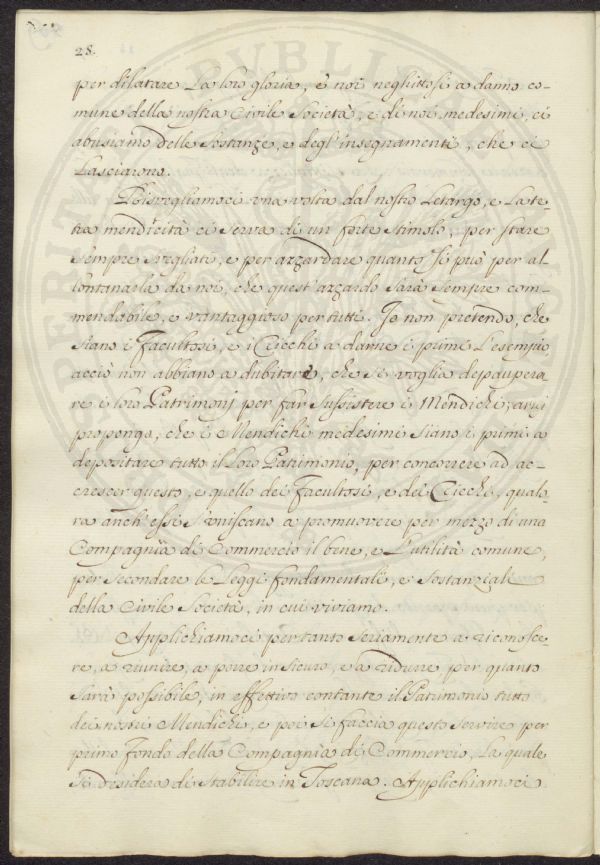 28.
per dilatare La loro gloria, e noi neghittosi a danno co-
mune della nostra Civile Società, e di noi medesimi, ci
abusiamo delle Sostanze, e degl'insegnamenti, che ci
Lasciarono.
Risvegliamoci una volta dal nostro Letargo, e La te-
tra mendicità ci Serva di un forte Stimolo, per stare
Sempre Svegliati, e per azzardare quanto Si può per al-
lontanarla da noi, che quest'azzardo Sarà Sempre com-
mendabile, e vantaggioso per tutti. Io non pretendo, che
Siano i Facultosi, e i Ricchi a darne i primi L'esempio
acciò non abbiano a dubitare, che Si voglia depaupera
re i loro Patrimonj per far Sussistere i Mendichi; anzi
propongo, che i Mendichi medesimi Siano i primi a
depositare tutto il Loro Patrimonio, per concorrere ad ac-
crescer questo, e quello dei Facultosi, e dei Ricchi, qualo-
ra anch'essi S'uniscano a promuovere per mezzo di una
Compagnia di Commercio il bene, e L'utilità comune,
per Secondare le Leggi fondamentali, e Sostanziali
della Civile Società, in cui viviamo.
Applichiamoci pertanto Seriamente a riconosce-
re, a riunire, a porre in Sicuro, e a ridurre per quanto
Sarà possibile, in effettivo contante il Patrimonio tutto
dei nostri Mendichi, e poi Si faccia questo Servire per
primo Fondo della Compagnia di Commercio, La quale
Si desidera di Stabilire in Toscana. Applichiamoci
PUBLICAE